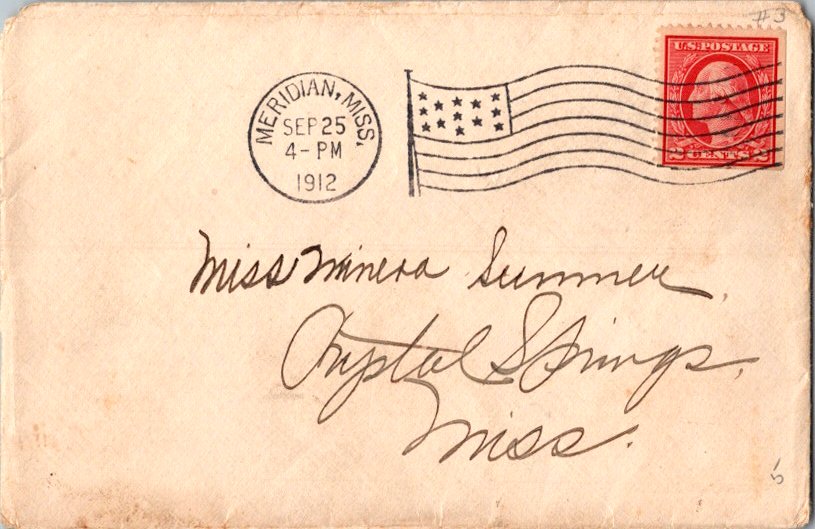 #3
U.S. POSTAGE
MERIDIAN, MISS.
SEP 25
4-PM
1912
2 CENTS 2
Miss Minera Summer
Crystal Springs,
Miss.
5